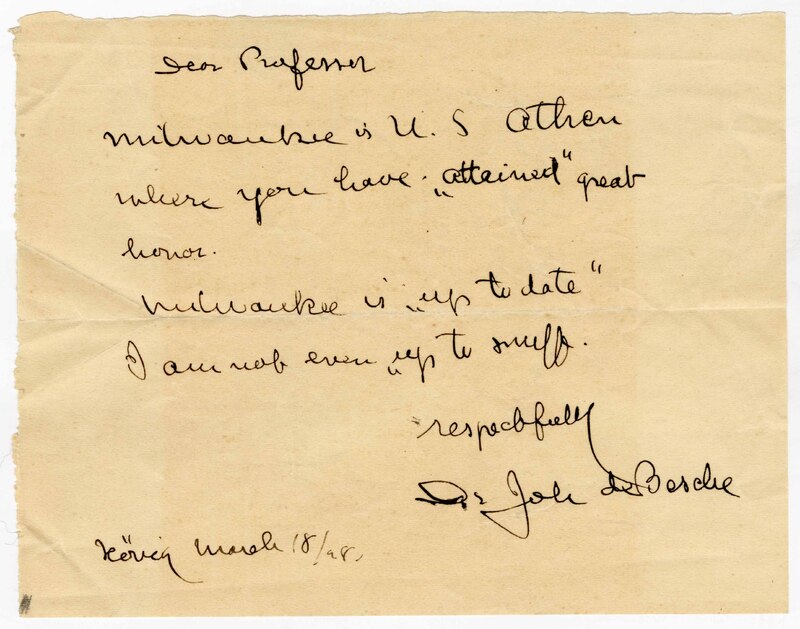 Dear Professor
Milwaukee is U. S Athen
where you have „attained" great
honor.
Milwaukee is „up to date"
I am not even „up to snuff.
respectfully
Dr Joh de Besche
March 18/98.